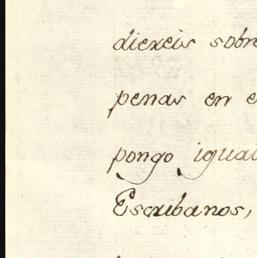 diereis sobre
penas en e
pongo igual
Escribanos,